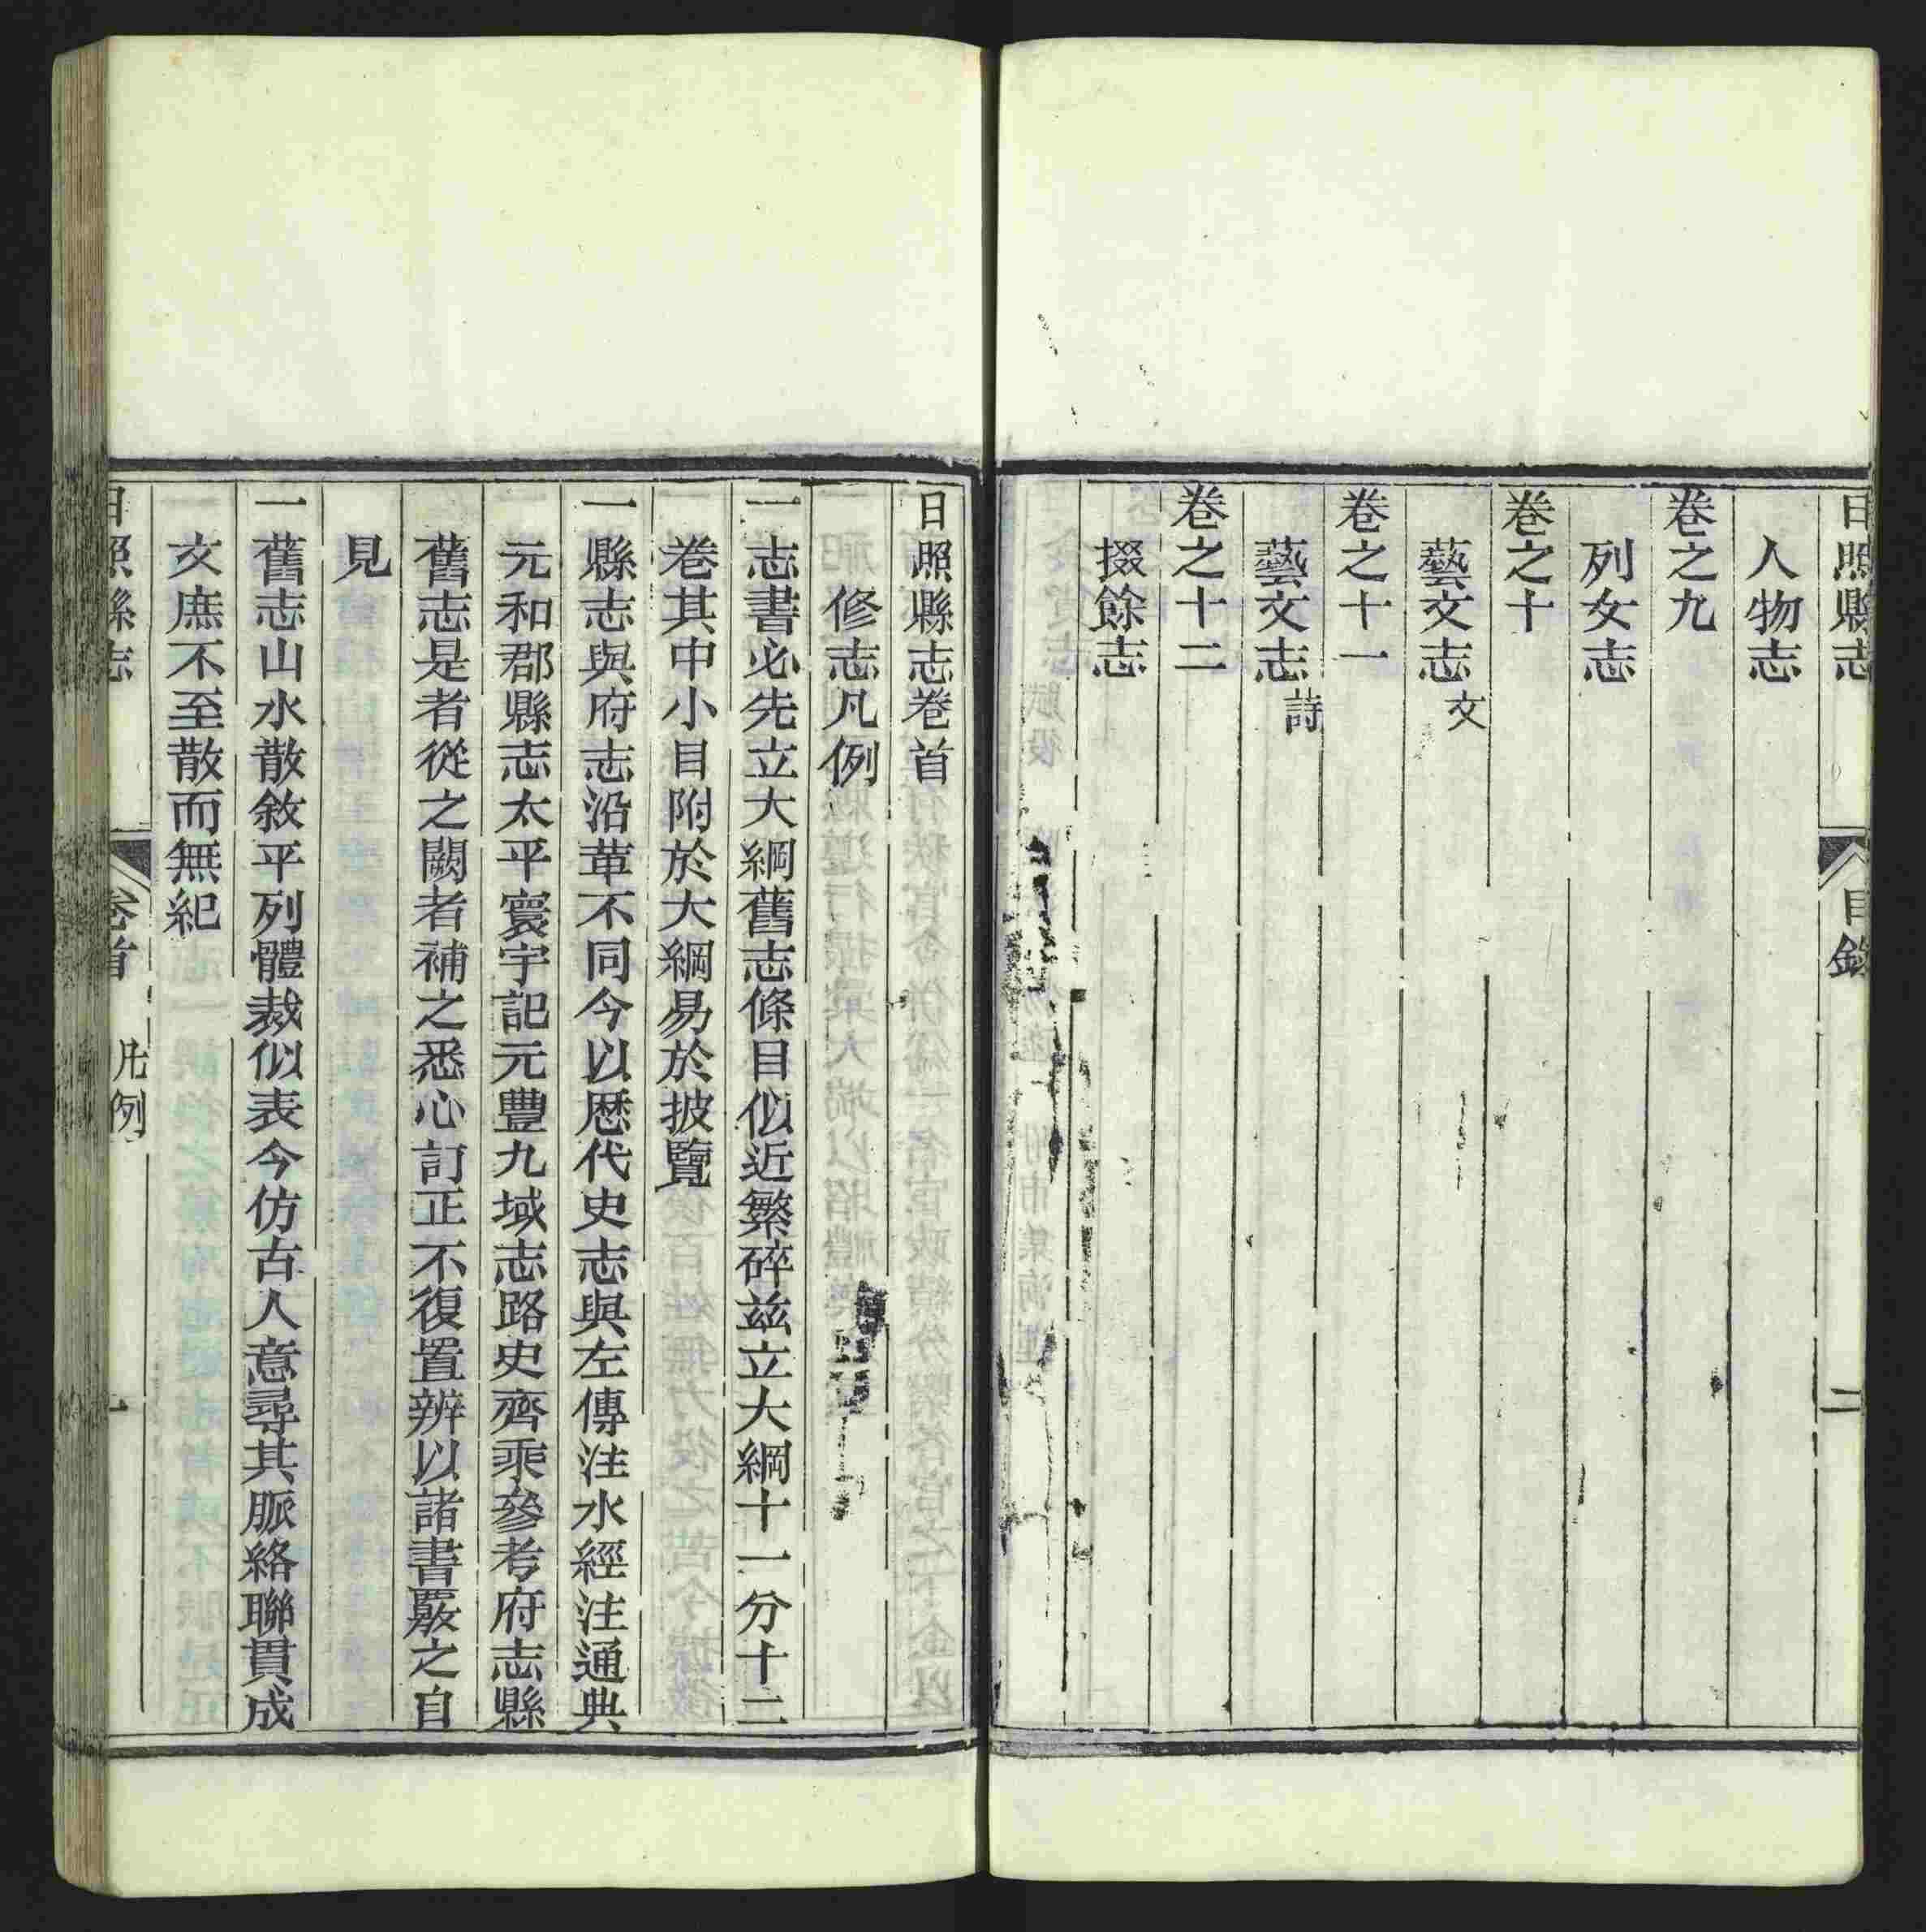 日照縣志 目錄 二
人物志
卷之九
列女志
卷之十
藝文志 文
卷之十一
藝文志 詩
卷之十二
掇餘志
日照縣志卷首
修志凡例
一志書必先立大綱舊志條目似近繁碎玆立大綱十一分十二
卷其中小目附於大綱易於披覽
一縣志與府志沿革不同今以歷代史志與左傳注水經注通典
元和郡縣志太平寰宇記元豐九域志路史齊乘參考府志縣
舊志是者從之闕者補之悉心訂正不復置辨以諸書覈之自
見
一舊志山水散敘平列體裁似表今仿古人意尋其脈絡聯貫成
文庶不至散而無紀
日照縣志 卷首 凡例 一